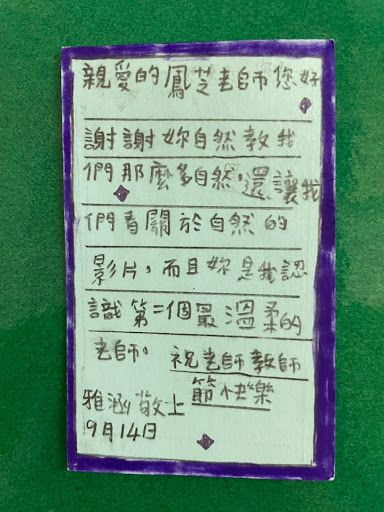 親愛的鳳芝老師您好
謝謝妳自然教我
們那麼多自然,還讓我
們看關於自然的
影片,而且妳是我認
識第二個最溫柔的
老師。祝老師教師
節快樂
雅涵敬上
9月14日